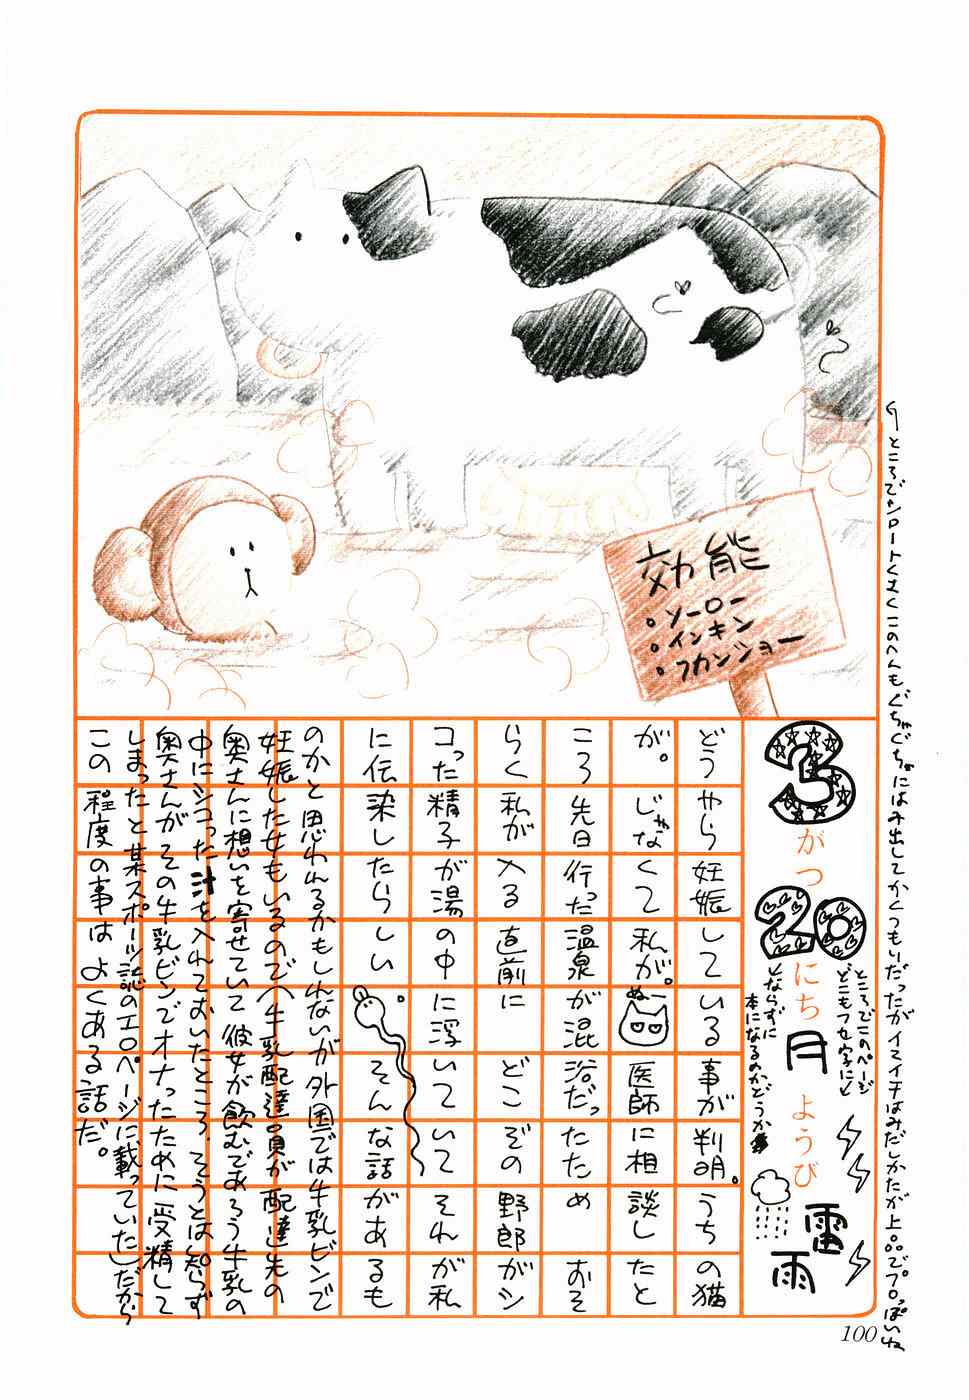 効能
・ソーロー
・インキン
・フカンショー
3がつ20にち月ようび
雷雨
ところでこのページ
どこもフセ字にど
とならずに
本になるのかどうか
どうやら妊娠している事が判明。うちの猫
が。じゃなくて私が。医師に相談したと
ぬー
ころ先日行った温泉が混浴だったためおそ
らく私が入る直前にどこぞの野郎がシ
コった精子が湯の中に浮いていてそれが私
に伝染したらしい。そんな話があるも
のかと思われるかもしんないが外国では牛乳ビンで
妊娠した女もいるので(牛乳配達員が配達先の
奥さんに想いを寄せていて彼女が飲むであろう牛乳の
中にシコった汁を入れておいたところ、そうとは知らず
奥さんがその牛乳ビンでオナったために受精して
しまったと某スポーツ誌のエロページに載っていた)だから
この程度の事はよくある話だ。
ところでャンロートくむくこのへんもぐちゃぐちゃにはみ出してかくつもりだったがイマイチはみだしかたが上品でプロっぽいね
100